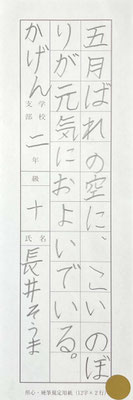 五月ばれの空に、こいのぼ
りが元気におよいでいる。
かげん 学校 支部 二年 級 十 氏名 長井そうま
硬筆規定用紙(12字×2行)